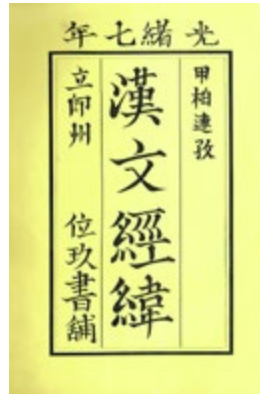 光緒七年
甲柏連孜
漢文經緯
立即州 位玖書舖